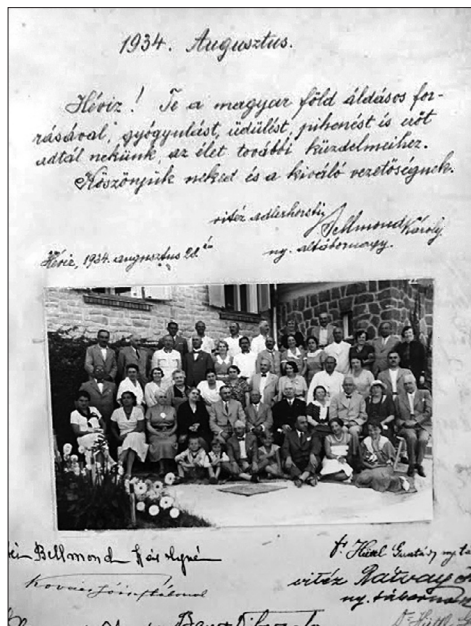 1934. Augusztus.
Hévíz! Te a magyar föld áldásos for-
rásával, gyógyulást, üdülést, pihenést és erőt
adtál nekünk az élet további küzdelmeihez.
Köszönjük neked és a kiváló vezetőségnek.
vitéz adlerhorsti
Bellmond Károly
ny. altábornagy.
Hévíz, 1934. augusztus 21 én
Bellmond Károlyné
Dr. Gusztáv ny.
vitéz Rátvay
ny. tábor